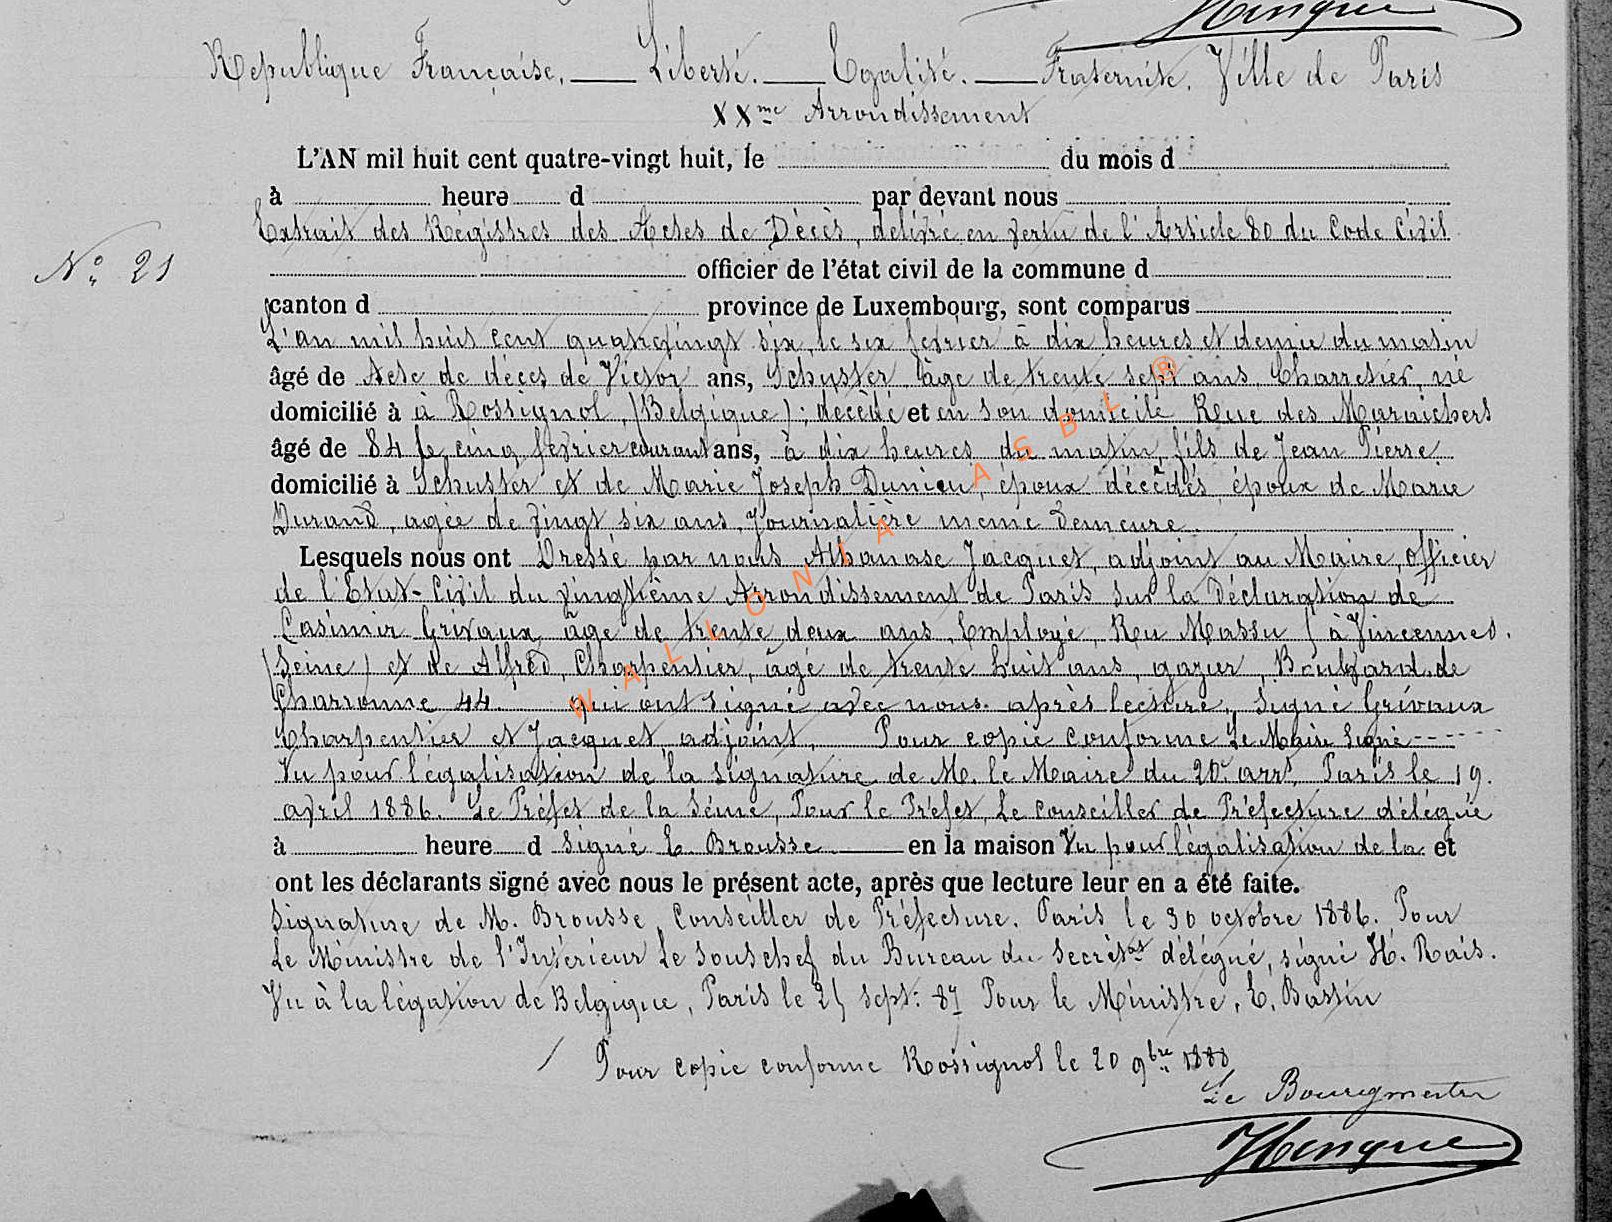 Hinque
Republique Française. — Liberté. — Egalité. — Fraternité. Ville de Paris
XXme Arrondissement
L'AN mil huit cent quatre-vingt huit, le du mois d
à heure d par devant nous
Extrait des Régistres des Actes de Décès, délivré en vertu de l'Article 80 du Code Civil
N° 21
officier de l'état civil de la commune d
canton d province de Luxembourg, sont comparus
L'an mil huit cent quatrevingt six, le six février à dix heures et demie du matin
âgé de Acte de décès de Victor ans, Schusster âge de trente sept ans, Charretier, né
domicilié à à Rossignol, (Belgique); décédé et en son domicile Rue des Maraichers
âgé de 84 le cinq février courant ans, à dix heures du matin, fils de Jean Pierre
domicilié à Schusster et de Marie Joseph Dunieu, époux décèdés, époux de Marie
Durand, agée de vingt six ans, Journalière meme demeure.
Lesquels nous ont Dressé par nous Athanase Jacquet, adjoint au Maire, officier
de l'Etat-Civil du vingtième Arrondissement de Paris sur la Déclaration de
Casimir Grivaux, âge de trente deux ans, Employé, Rue Massu, à Vincennes.
(Seine) et de Alfred, Charpentier, âgé de trente huit ans, gazier, Boulvard de
Charronne 44. qui ont signé avec nous après lecture, Signé Grivaux
Charpentier et Jacquet, adjoint. Pour copie conforme Le Maire Signé ------
Vu pour légalisation de la signature de M. le Maire du 20e arrt Paris le 19.
avril 1886. Le Préfet de la Seine, Pour le Préfet, Le conseiller de Préfecture délégué
à heure d signé E. Brousse en la maison Vu pour légalisation de la et
ont les déclarants signé avec nous le présent acte, après que lecture leur en a été faite.
Signature de M. Brousse, Conseiller de Préfecture. Paris le 30 octobre 1886. Pour
Le Ministre de l'Intérieur Le Souschef du Bureau du Secrétat délégué, signé H. Rais.
Vu à la légation de Belgique, Paris le 21 sept: 87 Pour le Ministre, E. Bassin
Pour copie conforme Rossignol le 20 9bre 1888
Le Bourgmestre
Hinque
WALLONIA ASBL ®